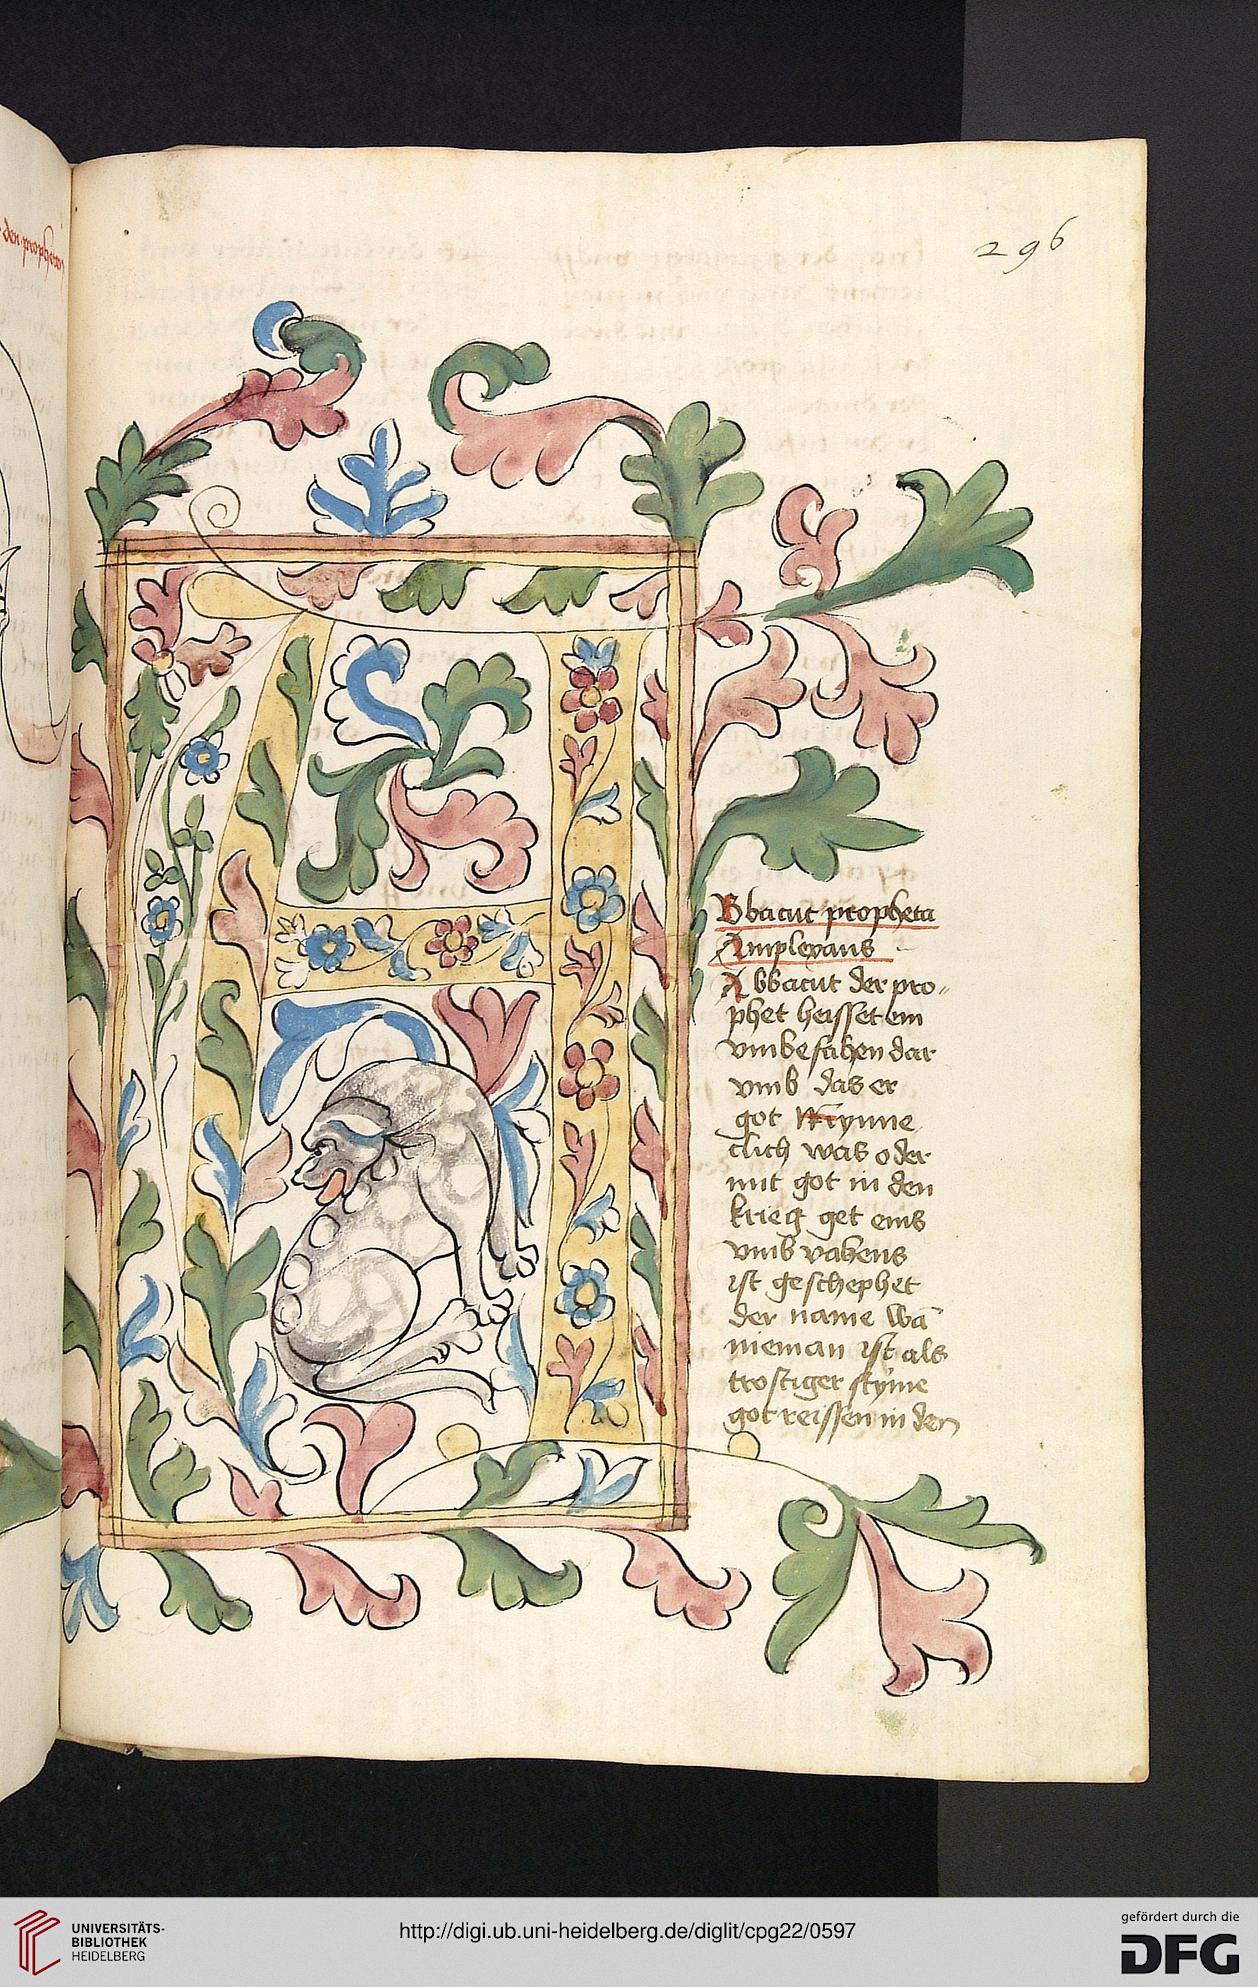 den propheten
296
Bbacuc propheta
Amplexans
Abbacuc der pro„
phet heisset ein
vmbefahen dar
vmb das er
got Mynne
clich was oder
mit got in den
krieg get eins
vmb vahens
ist geschephet
der name wā
nieman ist als
trostiger styme
got reissen in den
UNIVERSITÄTS-
BIBLIOTHEK
HEIDELBERG
http://digi.ub.uni-heidelberg.de/diglit/cpg22/0597
gefördert durch die
DFG